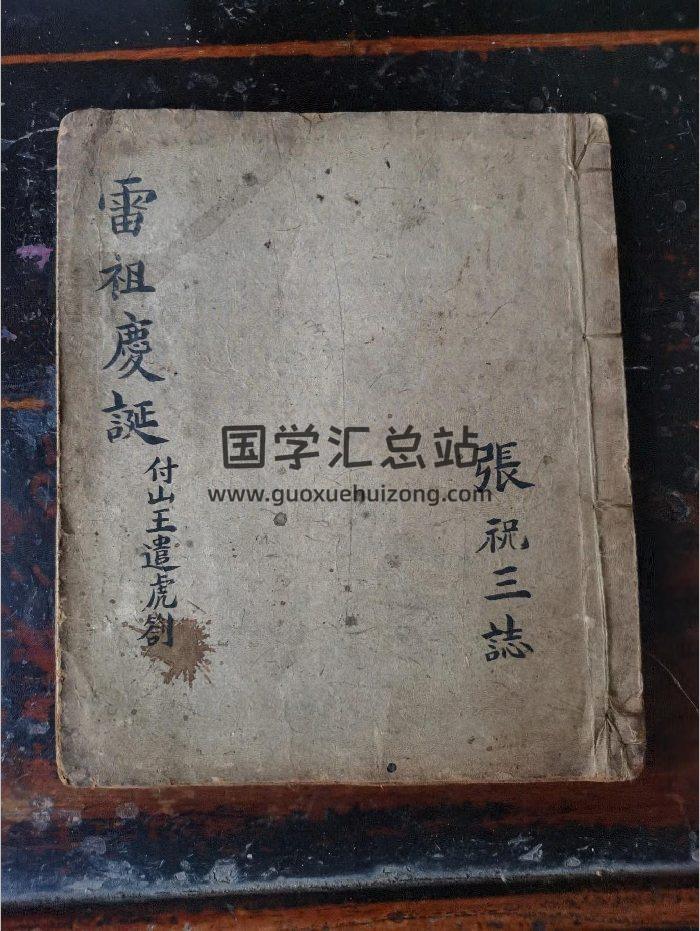 張祝三誌
雷祖慶誕
付山王遣虎劄
国学汇总站
www.guoxuehuizong.com